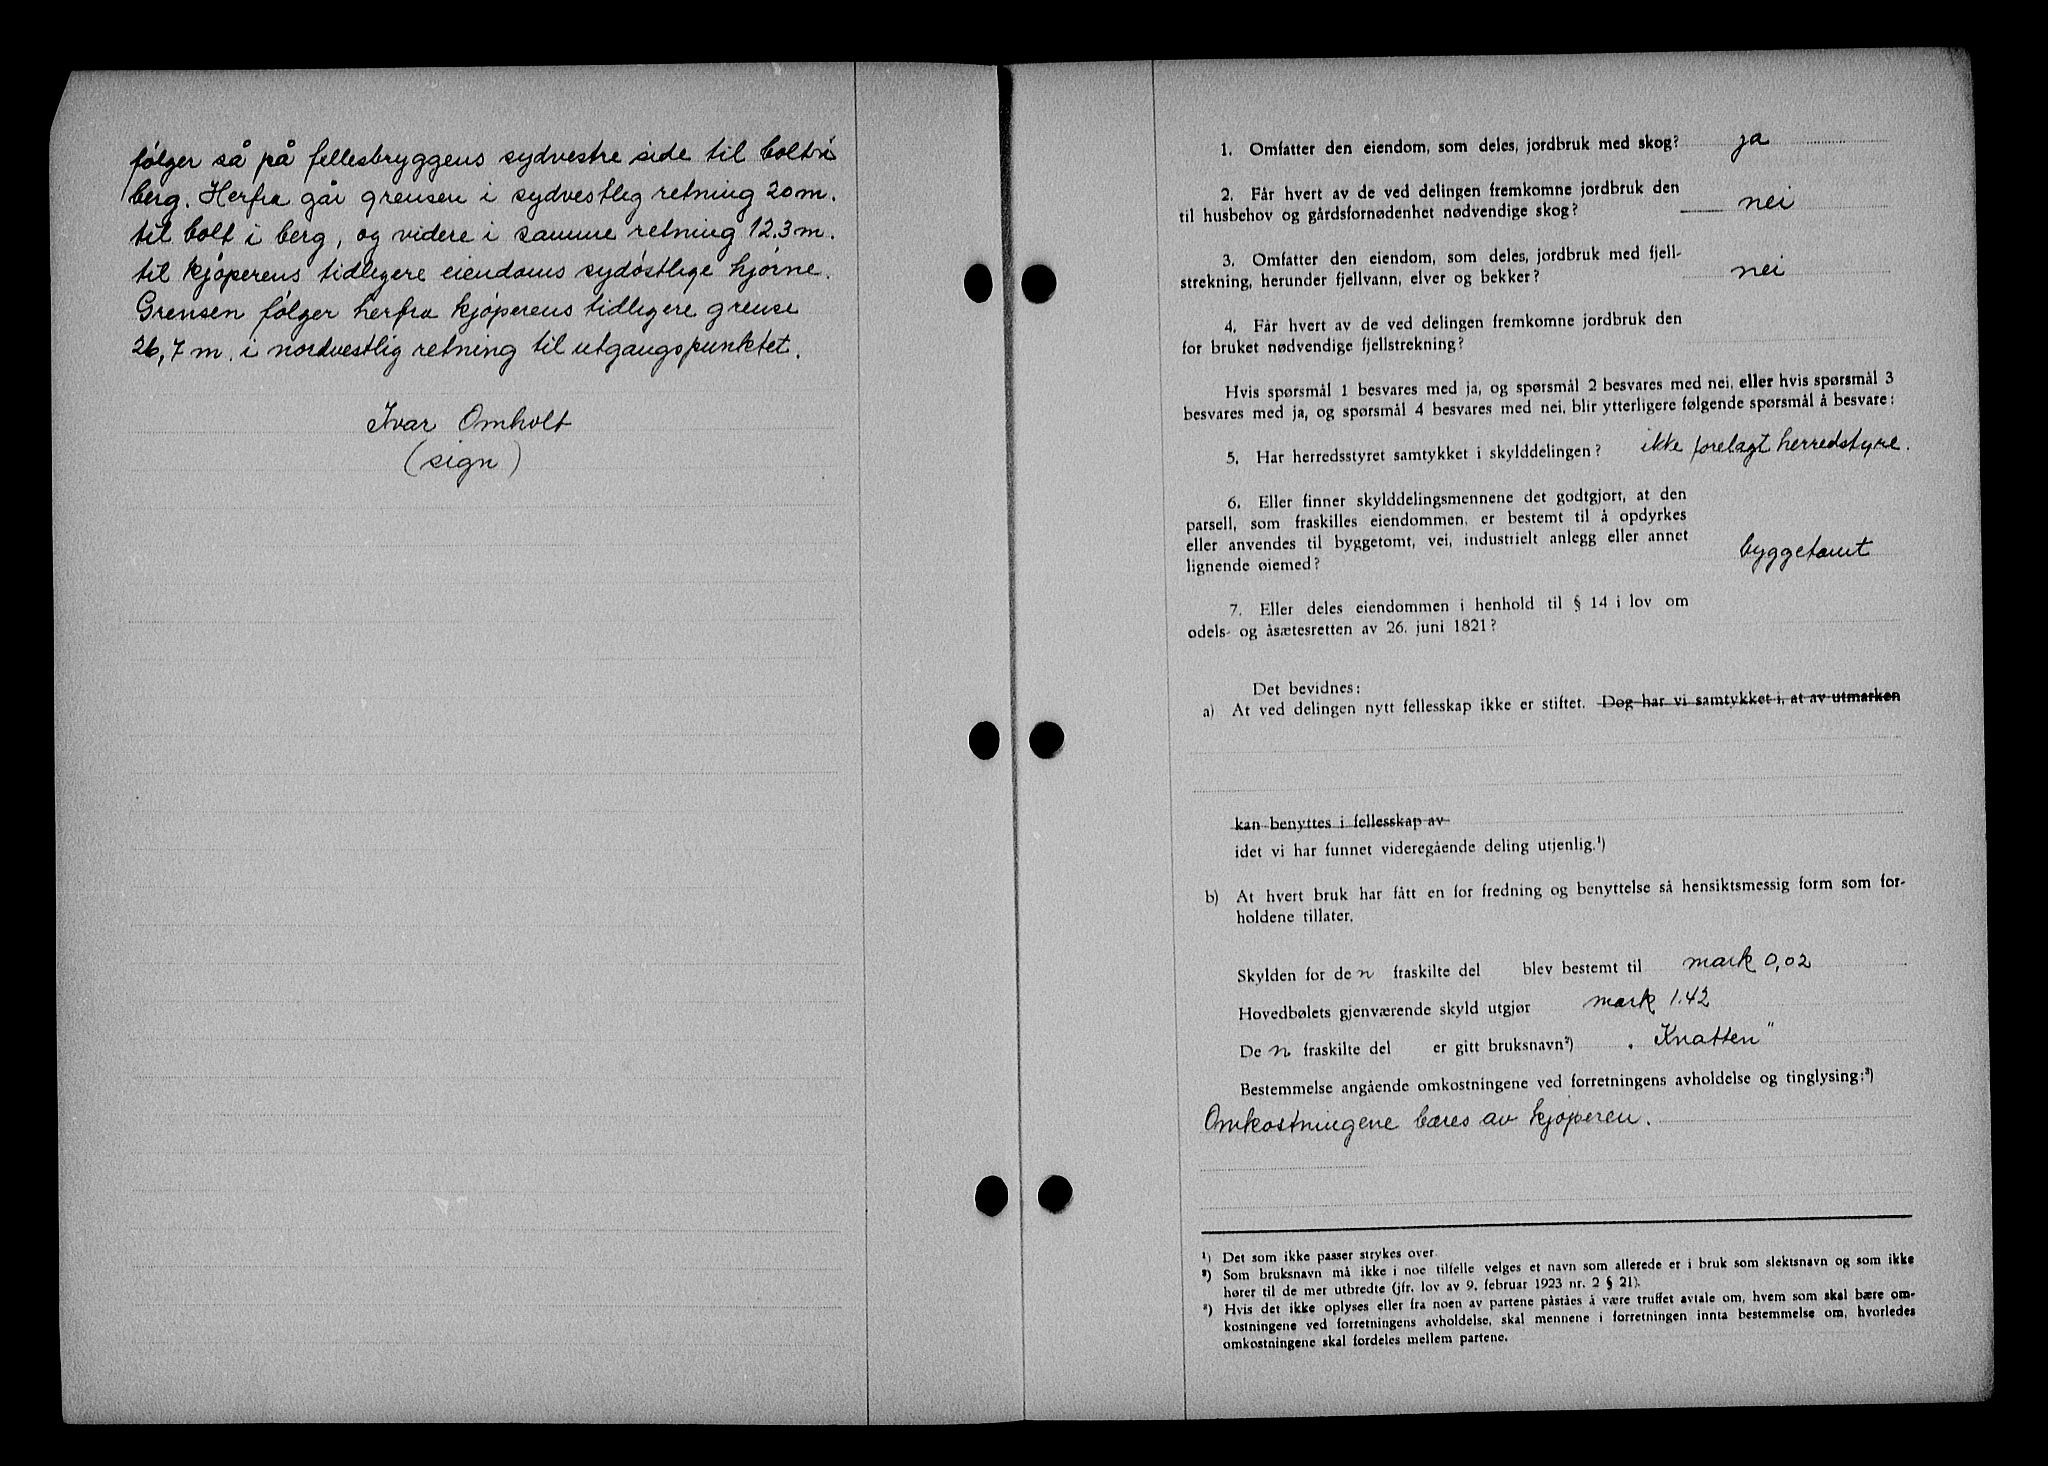 følger så på fellesbryggens sydvestre side til bolt i
berg. Herfra går grensen i sydvestlig retning 20 m.
til bolt i berg, og videre i samme retning 12.3 m.
til kjøperens tidligere eiendoms sydøstlige hjørne.
Grensen følger herfra kjøperens tidligere grense
26,7 m. i nordvestlig retning til utgangspunktet.
Ivar Omholt
(sign)
1. Omfatter den eiendom, som deles, jordbruk med skog? ja
2. Får hvert av de ved delingen fremkomne jordbruk den
til husbehov og gårdsfornødenhet nødvendige skog? nei
3. Omfatter den eiendom, som deles, jordbruk med fjell-
strekning, herunder fjellvann, elver og bekker? nei
4. Får hvert av de ved delingen fremkomne jordbruk den
for bruket nødvendige fjellstrekning?
Hvis spørsmål 1 besvares med ja, og spørsmål 2 besvares med nei, eller hvis spørsmål 3
besvares med ja, og spørsmål 4 besvares med nei, blir ytterligere følgende spørsmål å besvare:
5. Har herredsstyret samtykket i skylddelingen? ikke forelagt herredstyre.
6. Eller finner skylddelingsmennene det godtgjort, at den
parsell, som fraskilles eiendommen, er bestemt til å opdyrkes
eller anvendes til byggetomt, vei, industrielt anlegg eller annet
lignende øiemed? byggetomt
7. Eller deles eiendommen i henhold til § 14 i lov om
odels- og åsætesretten av 26. juni 1821?
Det bevidnes:
a) At ved delingen nytt fellesskap ikke er stiftet. Dog har vi samtykket i, at av utmarken
kan benyttes i fellesskap av
idet vi har funnet videregående deling utjenlig.¹)
b) At hvert bruk har fått en for fredning og benyttelse så hensiktsmessig form som for-
holdene tillater.
Skylden for den fraskilte del blev bestemt til mark 0,02
Hovedbølets gjenværende skyld utgjør mark 1.42
Den fraskilte del er gitt bruksnavn²) „Knatten"
Bestemmelse angående omkostningene ved forretningens avholdelse og tinglysing:³)
Omkostningene bæres av kjøperen.
¹) Det som ikke passer strykes over.
²) Som bruksnavn må ikke i noe tilfelle velges et navn som allerede er i bruk som slektsnavn og som ikke
hører til de mer utbredte (jfr. lov av 9. februar 1923 nr. 2 § 21).
³) Hvis det ikke oplyses eller fra noen av partene påståes å være truffet avtale om, hvem som skal bære om-
kostningene ved forretningens avholdelse, skal mennene i forretningen innta bestemmelse om, hvorledes
omkostningene skal fordeles mellem partene.